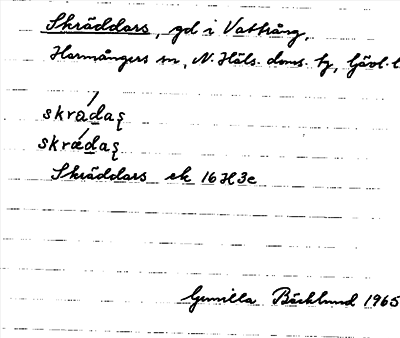 Skräddars, gd i Vattrång,
Harmångers sn, N. Häls. doms. fg, Gävl. l
skradaş
skrædaş
Skräddars ek 16H3e
Gunilla Bäcklund 1965